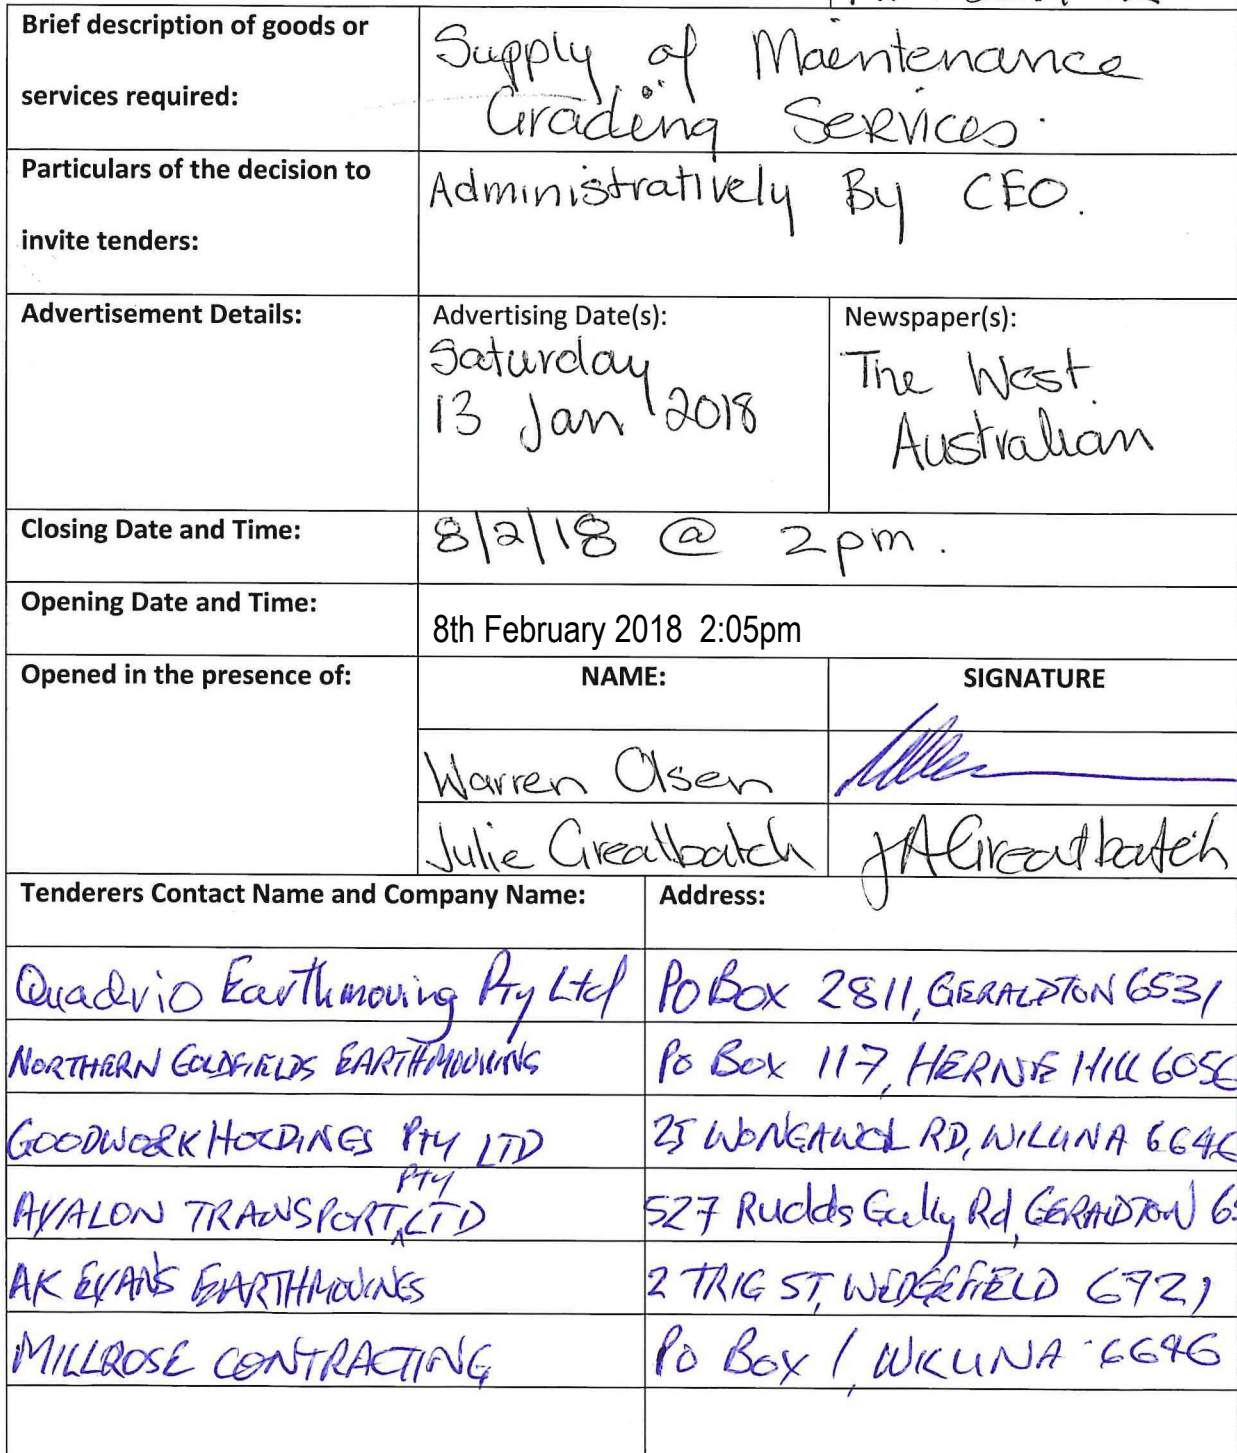 Brief description of goods or
services required:
Supply of Maintenance
Grading Services.
Particulars of the decision to
invite tenders:
Administratively By CEO.
Advertisement Details:
Advertising Date(s):
Saturday
13 Jan 2018
Newspaper(s):
The West
Australian
Closing Date and Time:
8/2/18 @ 2pm.
Opening Date and Time:
8th February 2018 2:05pm
Opened in the presence of:
NAME:
SIGNATURE
Warren Olsen
Julie Greatbatch
JA Greatbatch
Tenderers Contact Name and Company Name:
Address:
Quadrio Earthmoving Pty Ltd
PO Box 2811, GERALDTON 6531
NORTHERN GOLDFIELDS EARTHMOVING
Po Box 117, HERNE HILL 6056
GOODWORK HOLDINGS Pty LTD
25 WONGAWOL RD, WILUNA 6646
AVALON TRANSPORT Pty LTD
527 Rudds Gully Rd, GERALDTON 6
AK EVANS EARTHMOVING
2 TRIG ST, WEDGEFIELD 6721
MILLROSE CONTRACTING
Po Box 1, WILUNA 6646